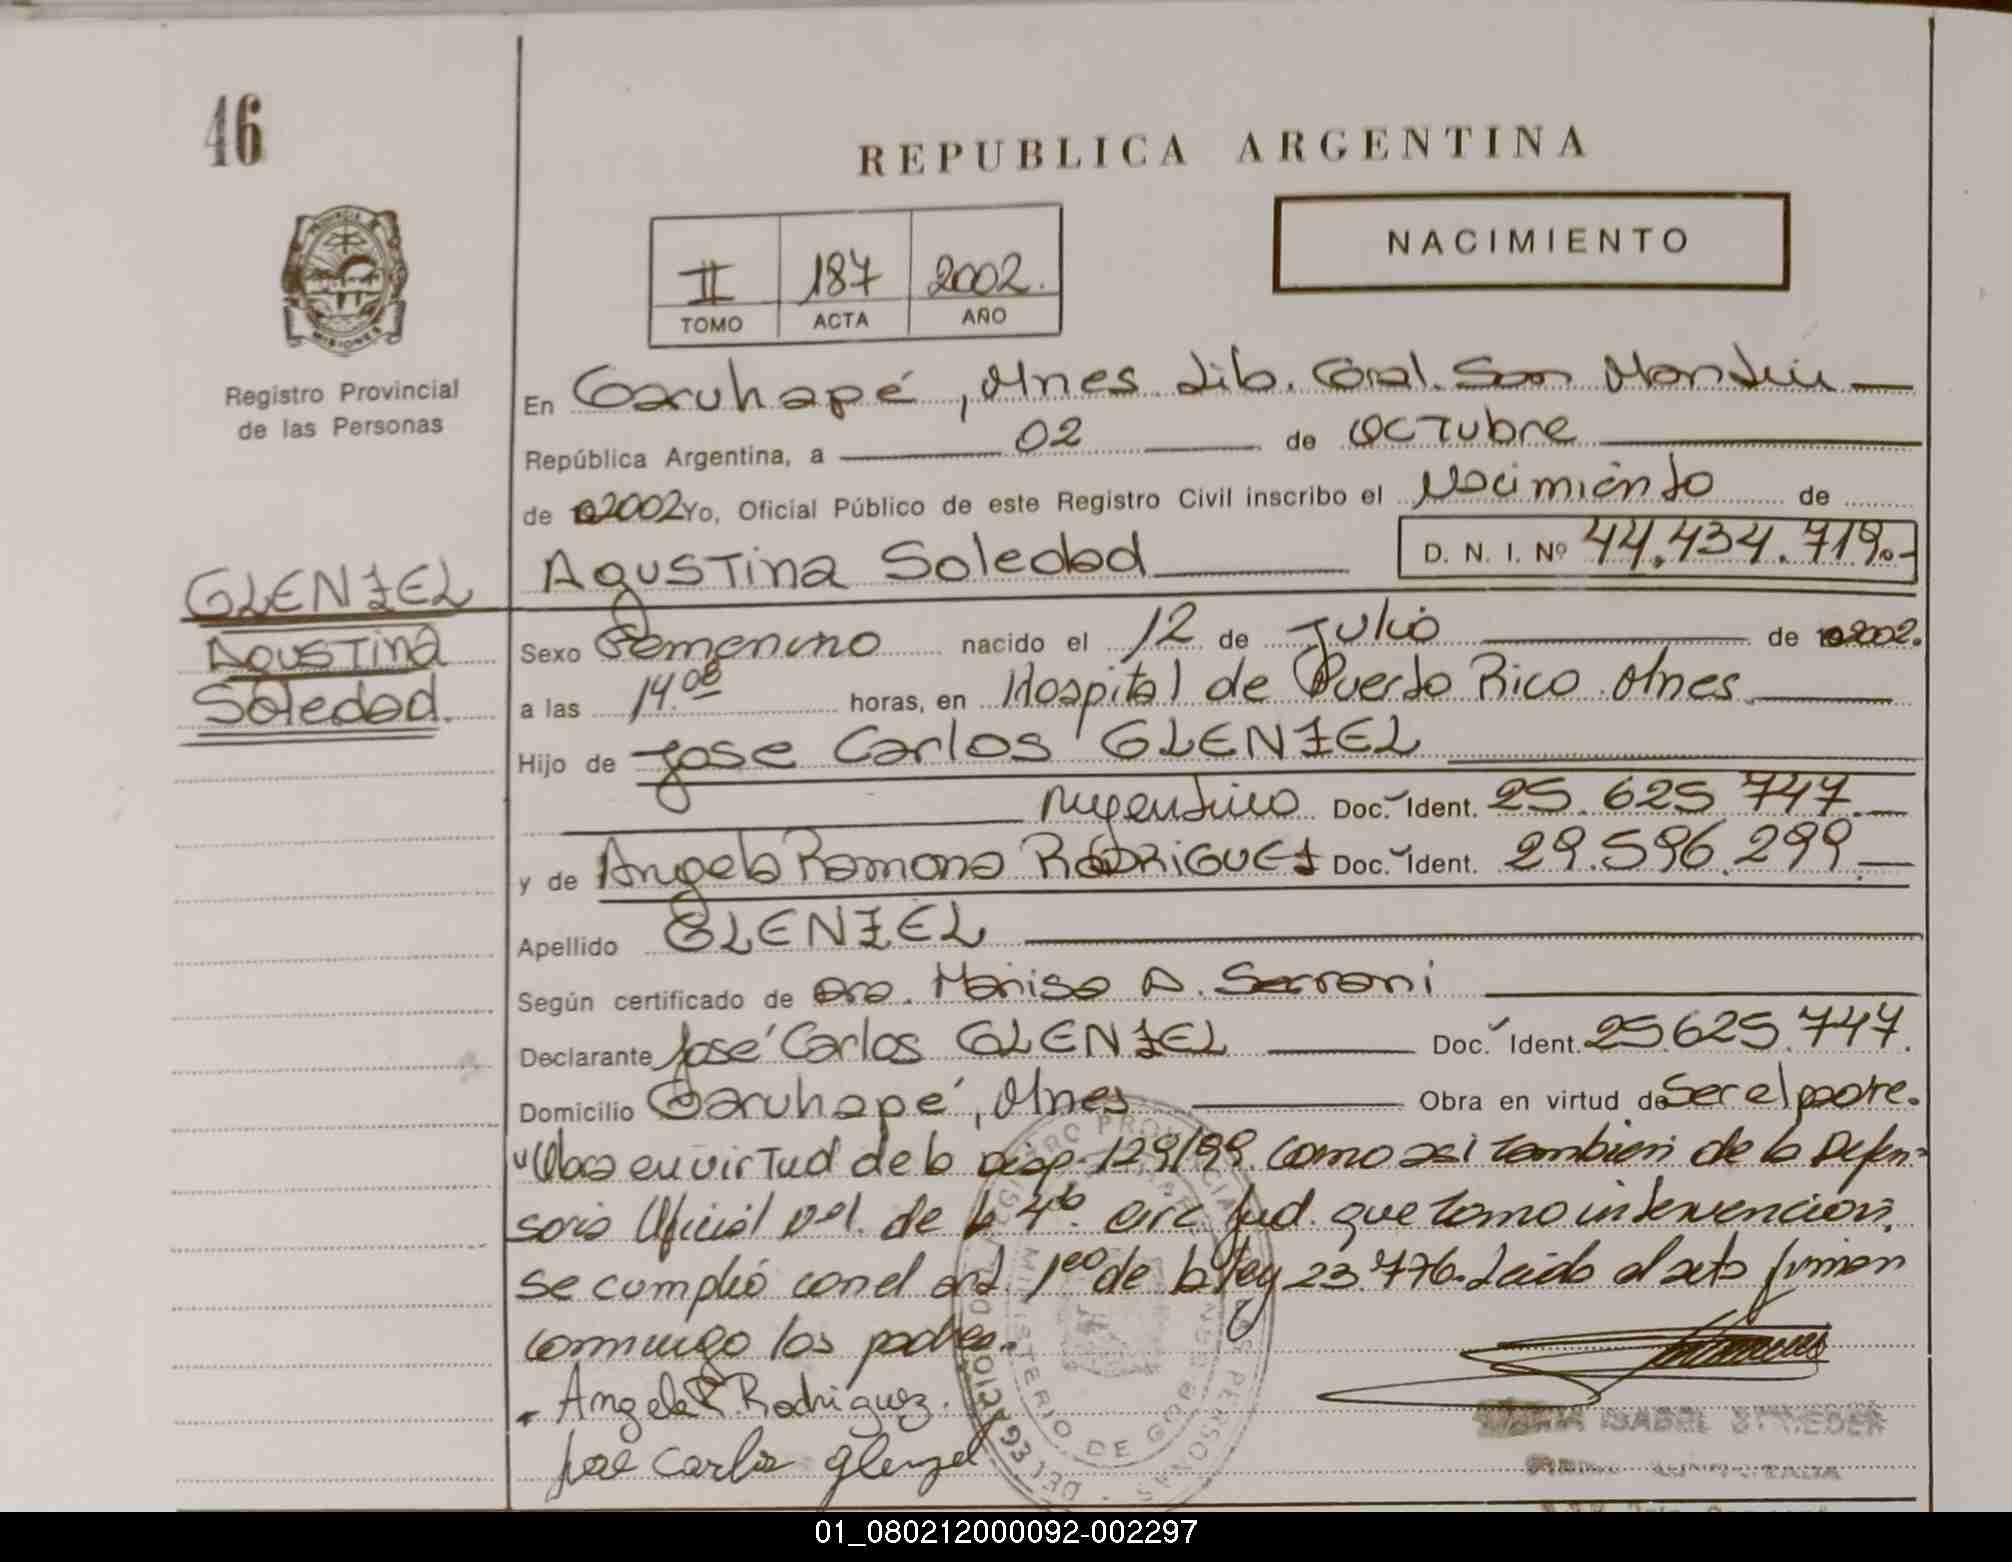 46
REPUBLICA ARGENTINA
NACIMIENTO
II 187 2002.
TOMO ACTA AÑO
PROVINCIA DE
MISIONES
Registro Provincial
de las Personas
En Garuhapé, Mnes. Lib. Gral. San Martín
República Argentina, a 02 de Octubre
de 2002 Yo, Oficial Público de este Registro Civil inscribo el Nacimiento de
Agustina Soledad D. N. I. Nº 44.434.719.-
GLENZEL
Agustina
Soledad.
Sexo Femenino nacido el 12 de Julio de 2002.
a las 14.08 horas, en Hospital de Puerto Rico Mnes.
Hijo de Jose Carlos GLENZEL
Argentino Doc. Ident. 25.625.747.
y de Angela Ramona RODRIGUEZ Doc. Ident. 29.596.299.
Apellido GLENZEL
Según certificado de Dra. Marisa A. Serrani
Declarante José Carlos GLENZEL Doc. Ident. 25.625.747.
Domicilio Garuhapé, Mnes Obra en virtud de Ser el padre.
"Obra en virtud de la Disp. 129/99. como asi tambien de la Defen-
soria Oficial de la 4ta. circ Jud. que tomo intervencion.
se cumplió con el art. 1ero de la ley 23.776. Leida el acta firman
conmigo los padres.
Angela R Rodriguez.
Jose Carlos glenzel
REGISTRO PROVINCIAL DE LAS PERSONAS
MINISTERIO DE GOBIERNO
DELEGACION
ISABEL
01_080212000092-002297